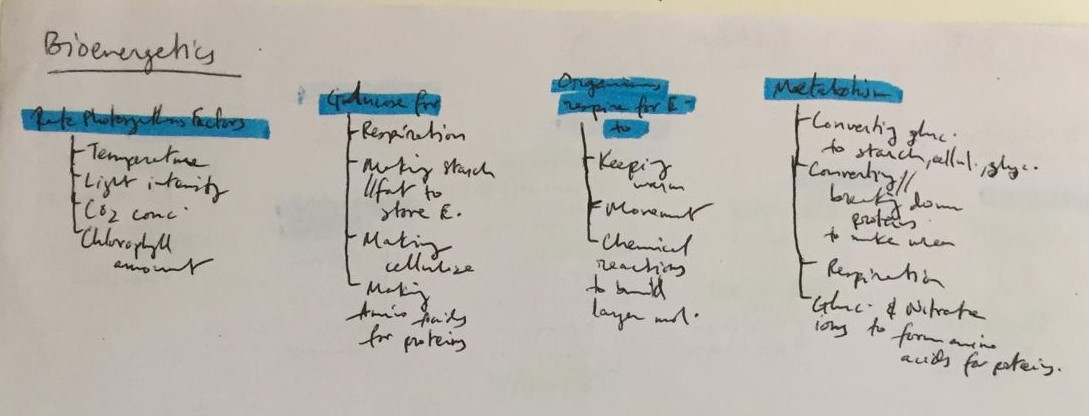 Bioenergetics
Rate Photosynthesis Factors
Temperature
Light intensity
CO2 conc.
Chlorophyll
amount
Glucose for
Respiration
Making starch
//fat to
store E.
Making
cellulose
Making
Amino acids
for proteins
Organisms
respire for E-
to
Keeping
warm
Movement
Chemical
reactions
to build
larger mol.
Metabolism
Converting gluc.
to starch, cellul., glyc.
Converting//
breaking down
proteins
to make urea
Respiration
Gluc. & Nitrate
ions to form amino
acids for proteins.